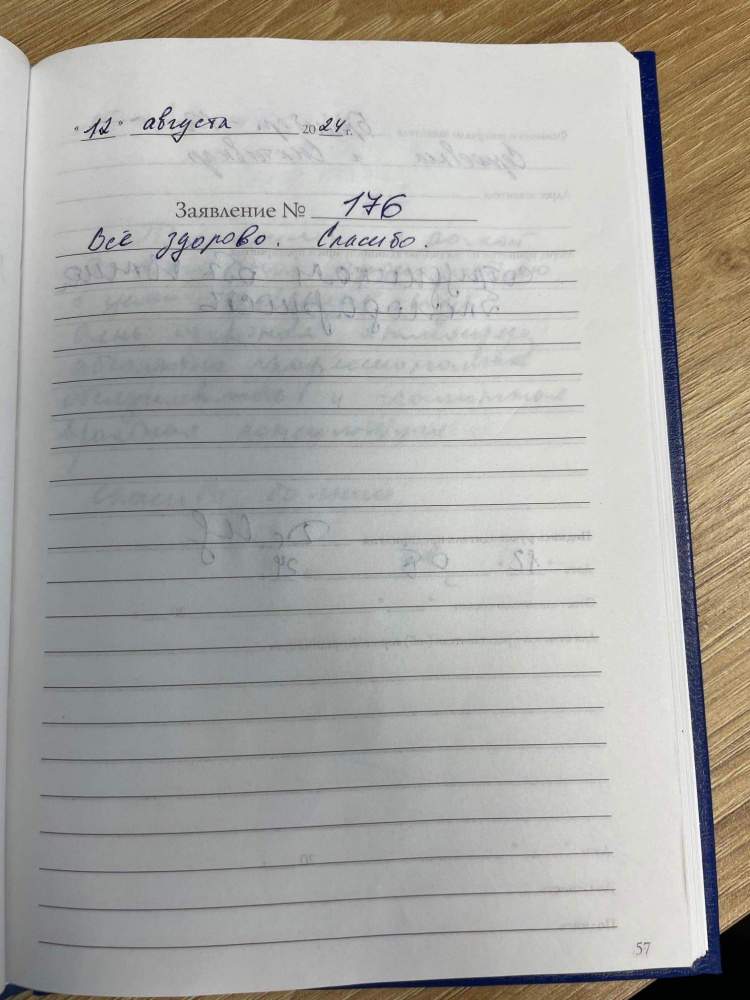 "12" августа 2024 г.
Заявление № 176
Всё здорово. Спасибо.
57